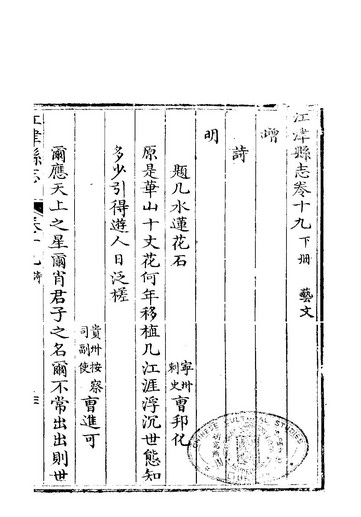 江津縣志卷十九下冊 藝文
增
詩
明
題几水蓮花石
寧州刺史 曹邦化
原是華山十丈花何年移植几江涯浮沉世態知
多少引得遊人日泛槎
貴州按察司副使 曹進可
爾應天上之星爾肖君子之名爾不常出出則世
江津縣志 卷十九 詩
CHINESE CULTURAL STUDIES